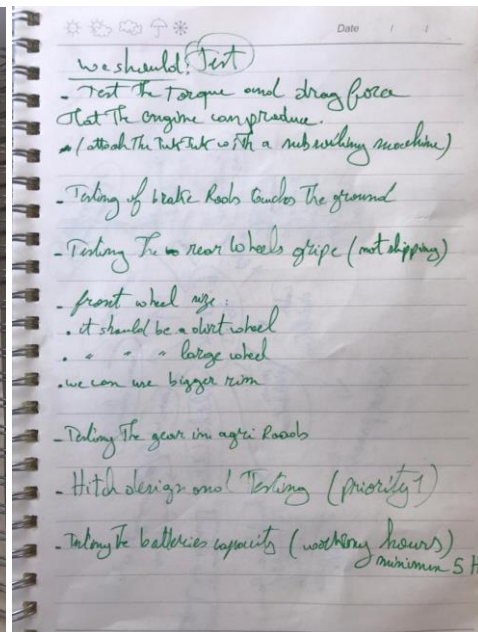 Date / /
we should: Test
- Test The Torque and drag force
that The engine can produce.
(attach The TukTuk with a machine)
- Testing of brake Roads touches The ground
- Testing The rear wheels gripe (not slipping)
- front wheel size:
. it should be a dirt wheel
. " " " large wheel
. we can use bigger rim
- Testing The gear in agri Roads
- Hitch design and Testing (priority 1)
- Testing The batteries capacity (working hours)
minimum 5 H